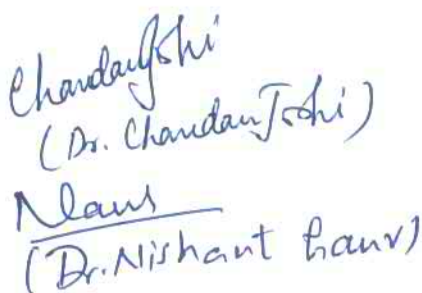 Chandan Joshi
(Dr. Chandan Joshi)
(Dr. Nishant Gaur)